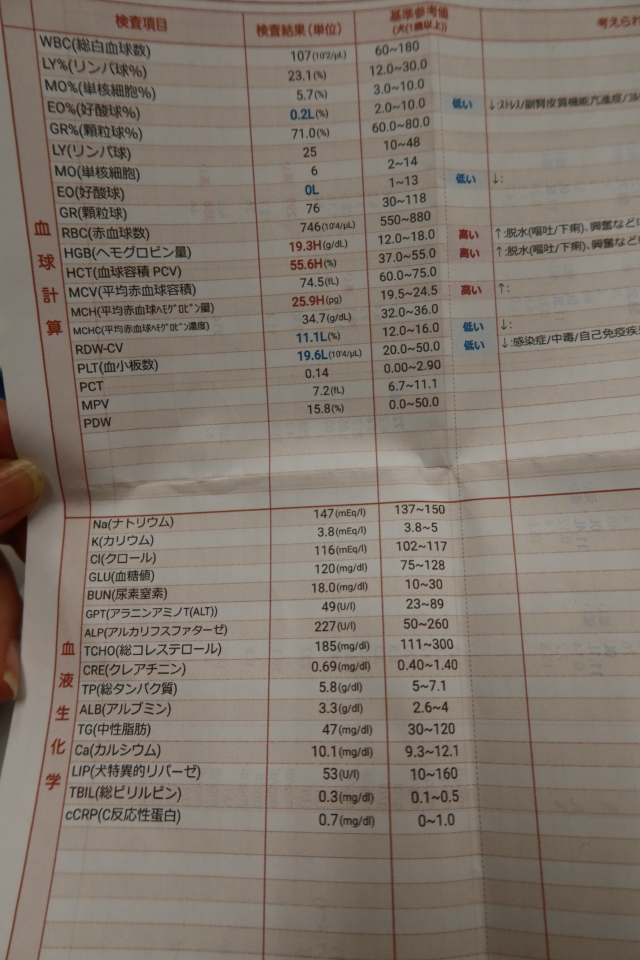 検査項目 検査結果(単位) 基準参考値 考えられ
(犬(1歳以上))
血球計算
WBC(総白血球数) 107(10²/μL) 60~180
LY%(リンパ球%) 23.1(%) 12.0~30.0
MO%(単核細胞%) 5.7(%) 3.0~10.0
EO%(好酸球%) 0.2L(%) 2.0~10.0 低い ↓:ストレス/副腎皮質機能亢進症/
GR%(顆粒球%) 71.0(%) 60.0~80.0
LY(リンパ球) 25 10~48
MO(単核細胞) 6 2~14
EO(好酸球) 0L 1~13 低い ↓:
GR(顆粒球) 76 30~118
RBC(赤血球数) 746(10⁴/μL) 550~880
HGB(ヘモグロビン量) 19.3H(g/dL) 12.0~18.0 高い ↑:脱水(嘔吐/下痢)、興奮など
HCT(血球容積 PCV) 55.6H(%) 37.0~55.0 高い ↑:脱水(嘔吐/下痢)、興奮など
MCV(平均赤血球容積) 74.5(fL) 60.0~75.0
MCH(平均赤血球ヘモグロビン量) 25.9H(pg) 19.5~24.5 高い ↑:
MCHC(平均赤血球ヘモグロビン濃度) 34.7(g/dL) 32.0~36.0
RDW-CV 11.1L(%) 12.0~16.0 低い ↓:
PLT(血小板数) 19.6L(10⁴/μL) 20.0~50.0 低い ↓:感染症/中毒/自己免疫疾
PCT 0.14 0.00~2.90
MPV 7.2(fL) 6.7~11.1
PDW 15.8(%) 0.0~50.0
血液生化学
Na(ナトリウム) 147(mEq/l) 137~150
K(カリウム) 3.8(mEq/l) 3.8~5
Cl(クロール) 116(mEq/l) 102~117
GLU(血糖値) 120(mg/dl) 75~128
BUN(尿素窒素) 18.0(mg/dl) 10~30
GPT(アラニンアミノT(ALT)) 49(U/l) 23~89
ALP(アルカリフスファターゼ) 227(U/l) 50~260
TCHO(総コレステロール) 185(mg/dl) 111~300
CRE(クレアチニン) 0.69(mg/dl) 0.40~1.40
TP(総タンパク質) 5.8(g/dl) 5~7.1
ALB(アルブミン) 3.3(g/dl) 2.6~4
TG(中性脂肪) 47(mg/dl) 30~120
Ca(カルシウム) 10.1(mg/dl) 9.3~12.1
LIP(犬特異的リパーゼ) 53(U/l) 10~160
TBIL(総ビリルビン) 0.3(mg/dl) 0.1~0.5
cCRP(C反応性蛋白) 0.7(mg/dl) 0~1.0